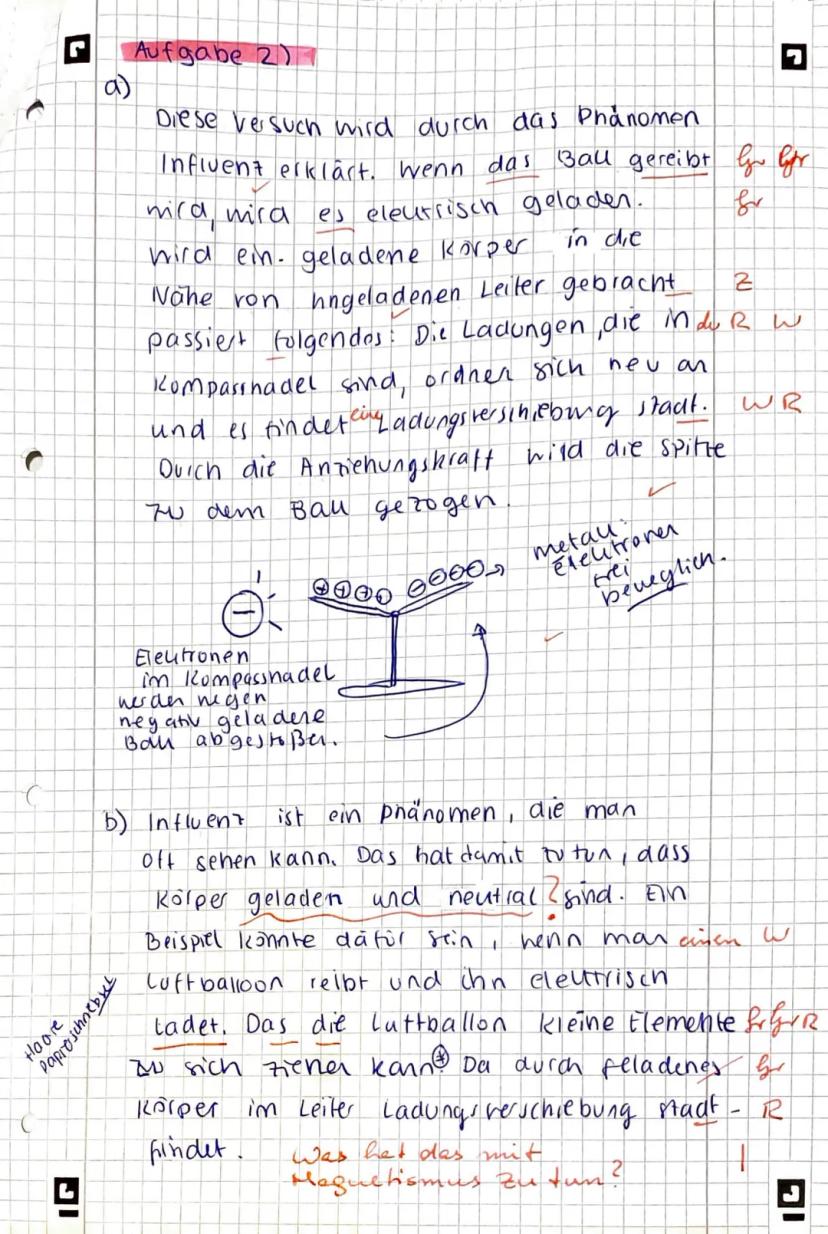 Aufgabe 2)
a)
Diese Versuch wird durch das Phänomen
Influenz erklärt. Wenn das Ball gereibt Gr Gr
wird, wird es elektrisch geladen. Gr
wird ein geladene Körper in die
Nähe von ungeladenen Leiter gebracht Z
passiert folgendes: Die Ladungen, die in der R W
Kompassnadel sind, ordnen sich neu an
und es findet eine Ladungsverschiebung stadt. W R
Durch die Anziehungskraft wird die Spitze
zu dem Ball gezogen.
metall:
elektronen
frei
beweglich.
Elektronen
im Kompassnadel
werden wegen
negativ geladene
Ball abgestoßen.
b) Influenz ist ein Phänomen, die man
oft sehen kann. Das hat damit zu tun, dass
Körper geladen und neutral ? sind. Ein
Beispiel könnte dafür sein, wenn man einen W
Luftballoon reibt und ihn elektrisch
Ladet. Das die Luftballon kleine Elemente Gr Gr R
zu sich ziehen kann. Da durch geladenes Gr
Körper im Leiter Ladungsverschiebung stadt - R
findet.
Haare
Was hat das mit
Magnetismus zu tun?